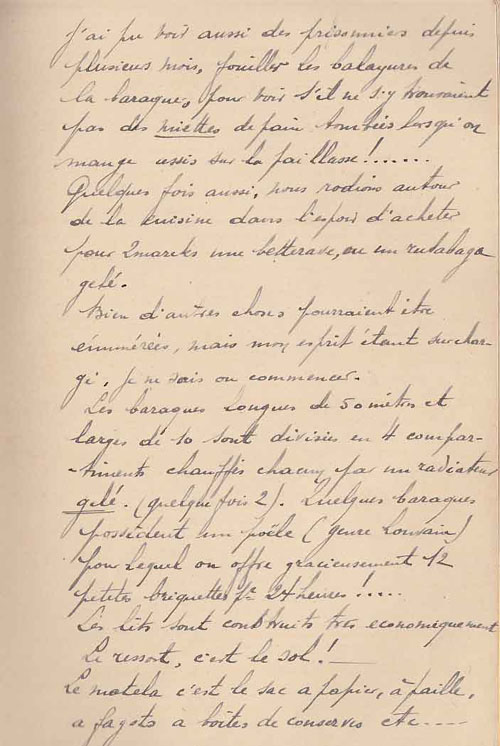 J'ai pu voir aussi des prisonniers depuis
plusieurs mois, fouiller les balayures de
la baraque, pour voir s'il ne s'y trouvaient
pas des miettes de pain tombées lorsqu'on
mange assis sur la paillasse!.......
Quelques fois aussi, nous rodions autour
de la cuisine dans l'espoir d'acheter
pour 2 marks une betterave, ou un rutabaga
gelé.
Bien d'autres choses pourraient être
énumérées, mais mon esprit étant surchar-
gé, je ne sais ou commencer.
Les baraques longues de 50 mètres et
larges de 10 sont divisées en 4 compar-
-timents chauffés chacun par un radiateur
gelé. (quelque fois 2). Quelques baraques
possèdent un poêle (genre Louvain)
pour lequel on offre gracieusement 12
petites briquettes pr 24 heures!.....
Les lits sont construits très economiquement
Le ressort, c'est le sol!—
Le matela c'est le sac a papier, à paille,
a fagots à boites de conserves etc----